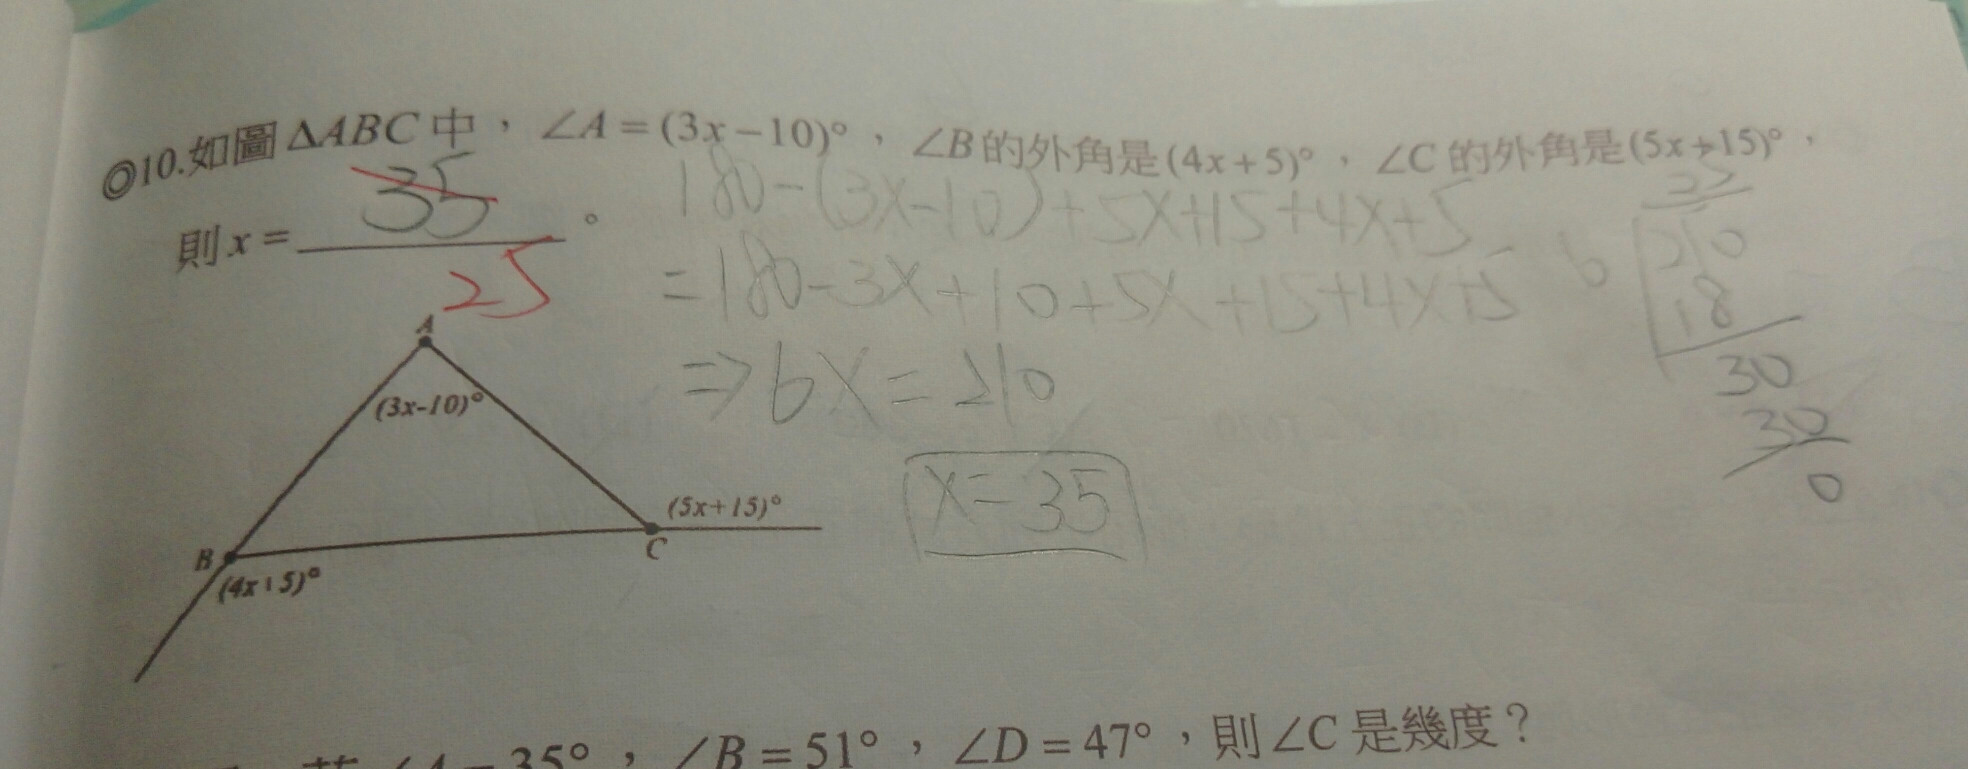 ◎10.如圖 ΔABC 中，∠A = (3x−10)°，∠B 的外角是(4x+5)°，∠C 的外角是(5x+15)°，
則 x = 35 °。
25
180-(3x-10)+5x+15+4x+5
=180-3x+10+5x+15+4x+5
⇒6x=210
x=35
35
6 210
18
30
30
0
A
(3x-10)°
(5x+15)°
B
C
(4x+5)°
∠B = 51°，∠D = 47°，則∠C 是幾度？